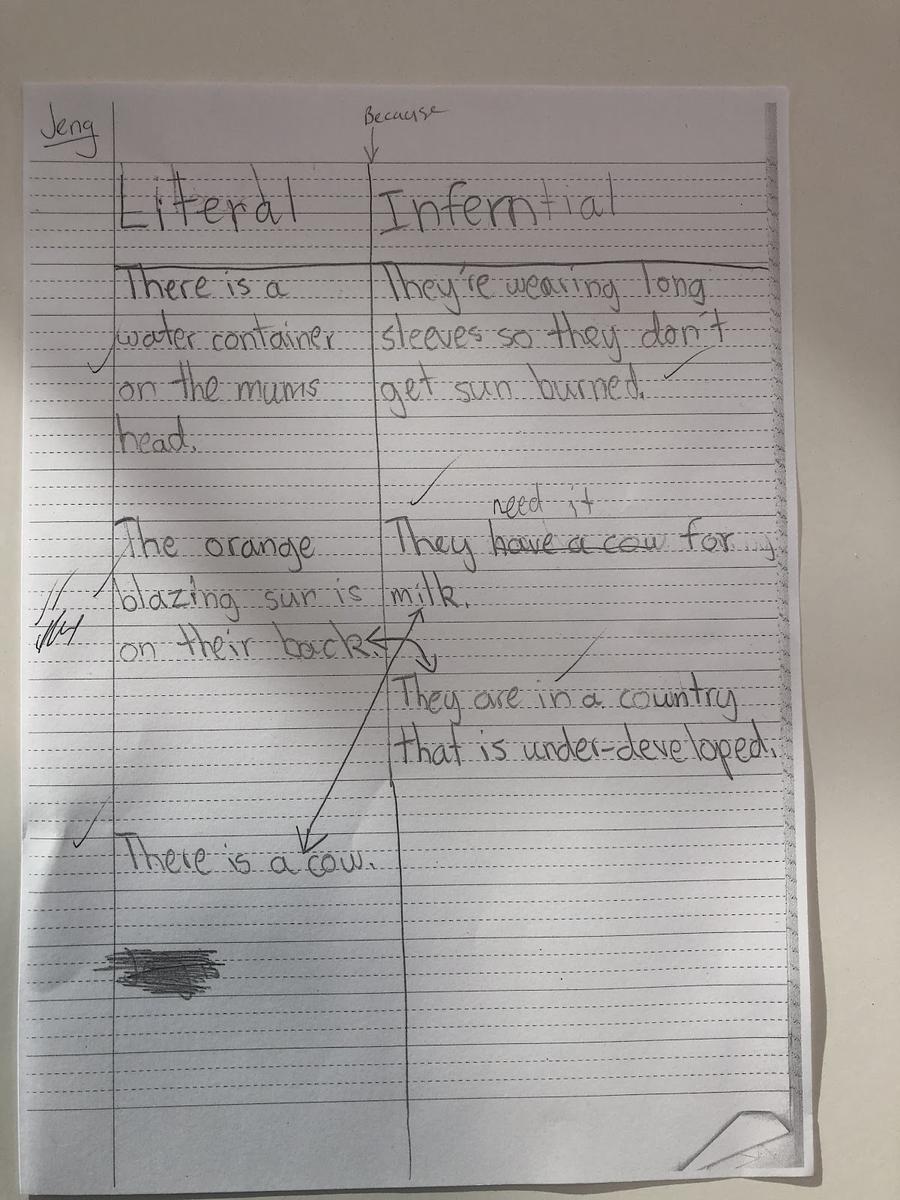 Jeng
Because
Literal
Inferntial
There is a
water container
on the mums
head.
They're wearing long
sleeves so they don't
get sun burned.
The orange
blazing sun is
on their back.
need it
They have a cow for
milk.
They are in a country
that is under-developed.
There is a cow.